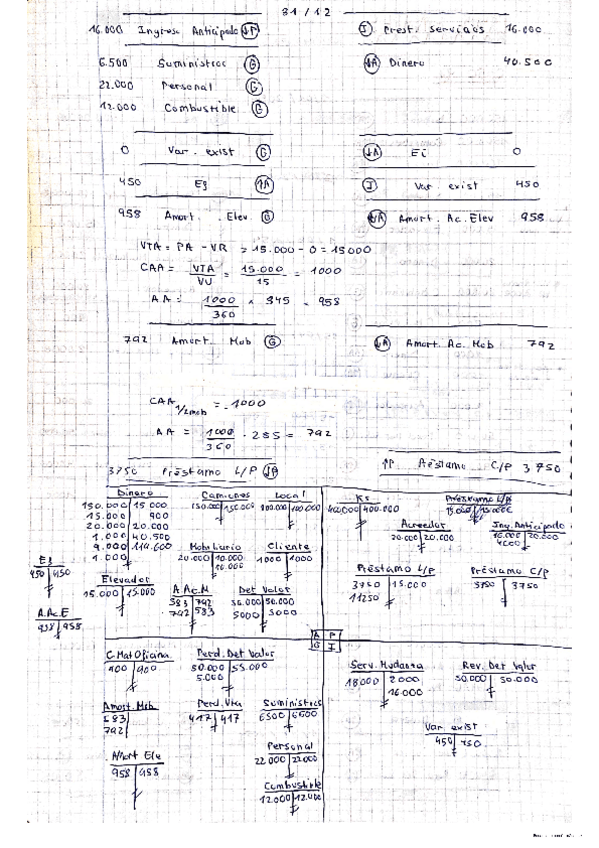 31/12
16.000 Ingreso Anticipado ↓P I Prest. servicios 16.000
6.500 Suministros G ↓A Dinero 40.500
22.000 Personal G
12.000 Combustible G
0 Var. exist G ↓A Ei 0
450 Ef ↑A I Var. exist 450
958 Amort. Elev G ↓A Amort. Ac. Elev 958
VTA = PA - VR = 15.000 - 0 = 15000
CAA = VTA/VU = 15.000/15 = 1000
AA = 1000/360 × 345 = 958
792 Amort. Mob G ↓A Amort. Ac. Mob 792
CAA 1/2 mob = 1000
AA = 1000/360 · 285 = 792
3750 Préstamo L/P ↓P ↑P Préstamo C/P 3750
Dinero Camiones Local Ks Préstamo L/p
150.000 15.000 150.000 150.000 100.000 100.000 400.000 400.000
15.000 900
20.000 20.000 Acreedor Ing. Anticipado
1.000 40.500 20.000 20.000 16.000 20.000
9.000 114.600 Mobiliario Cliente 4000
1.000 20.000 10.000 1000 1000
10.000
Ef
450 450
Elevador A.Ac.M Det Valor Préstamo L/p Préstamo C/p
15.000 15.000 583 792 50.000 3750 15.000 3750 3750
792 583 5000 5000 11250
A.Ac.E
958 958
A P
G I
C.Mat Oficina Perd. Det Valor Serv. Mudanza Rev. Det Valor
900 900 50.000 55.000 18000 2000 50.000 50.000
5.000 16.000
Amort. Mob Perd. Vta Suministros Var exist
583 417 417 6500 6500 450 450
792
Amort Ele Personal
958 958 22.000 22.000
Combustible
12000 12.000